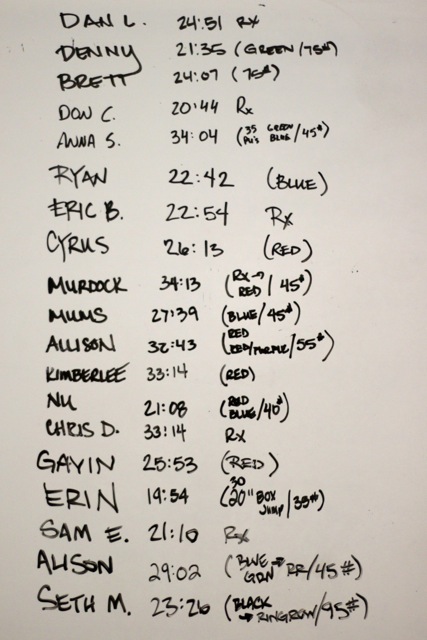 DAN L. 24:51 RX
DENNY 21:35 (GREEN/75#)
BRETT 24:07 (75#)
DON C. 20:44 Rx
ANNA S. 34:04 (35 PU's GREEN BLUE/45#)
RYAN 22:42 (BLUE)
ERIC B. 22:54 Rx
CYRUS 26:13 (RED)
MURDOCK 34:13 (RX→RED/45#)
MUMS 27:39 (BLUE/45#)
ALLISON 32:43 (RED RED/PURPLE/55#)
KIMBERLEE 33:14 (RED)
NU 21:08 (RED BLUE/40#)
CHRIS D. 33:14 RX
GAVIN 25:53 (RED)
ERIN 19:54 (30 20" BOX JUMP/35#)
SAM E. 21:10 Rx
ALISON 29:02 (BLUE→GRN RR/45#)
SETH M. 23:26 (BLACK→RINGROW/95#)